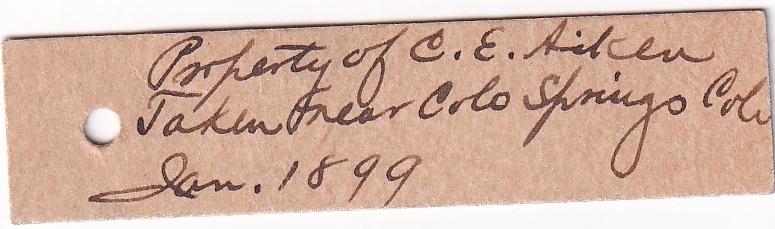 Property of C. E. Aiken
Taken near Colo Springs Colo
Jan. 1899